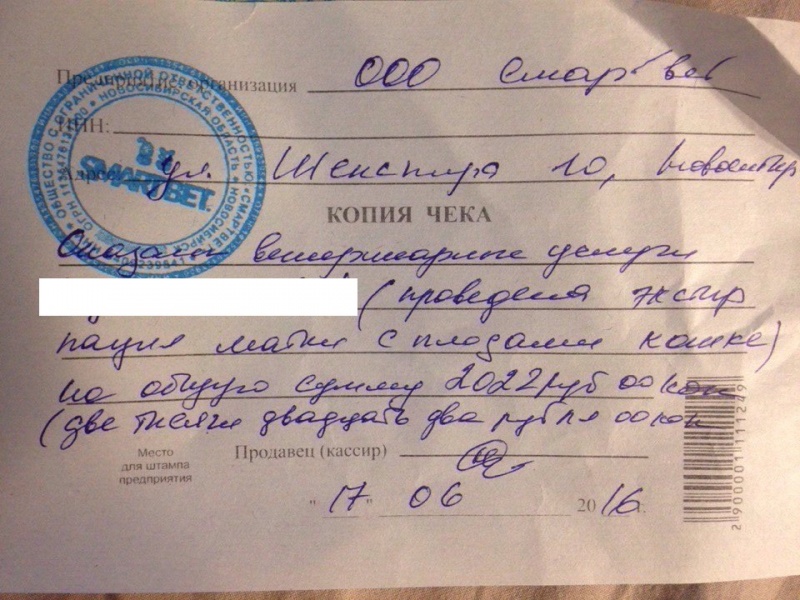 Предприятие, организация ООО Смартвет
ИНН:
Адрес ул. Шекспира 10, Новосибир
ОБЩЕСТВО С ОГРАНИЧЕННОЙ ОТВЕТСТВЕННОСТЬЮ «СМАРТВЕТ»
НОВОСИБИРСКАЯ ОБЛАСТЬ НОВОСИБИРСК
ОГРН
SMARTBET
КОПИЯ ЧЕКА
Оказаны ветеринарные услуги
(проведена экстир
пация матки с плодами кошке)
на общую сумму 2022 руб 00 коп
(две тысячи двадцать два рубля 00 коп
Место
для штампа
предприятия
Продавец (кассир)
"17" 06 2016 г.
2900001111249